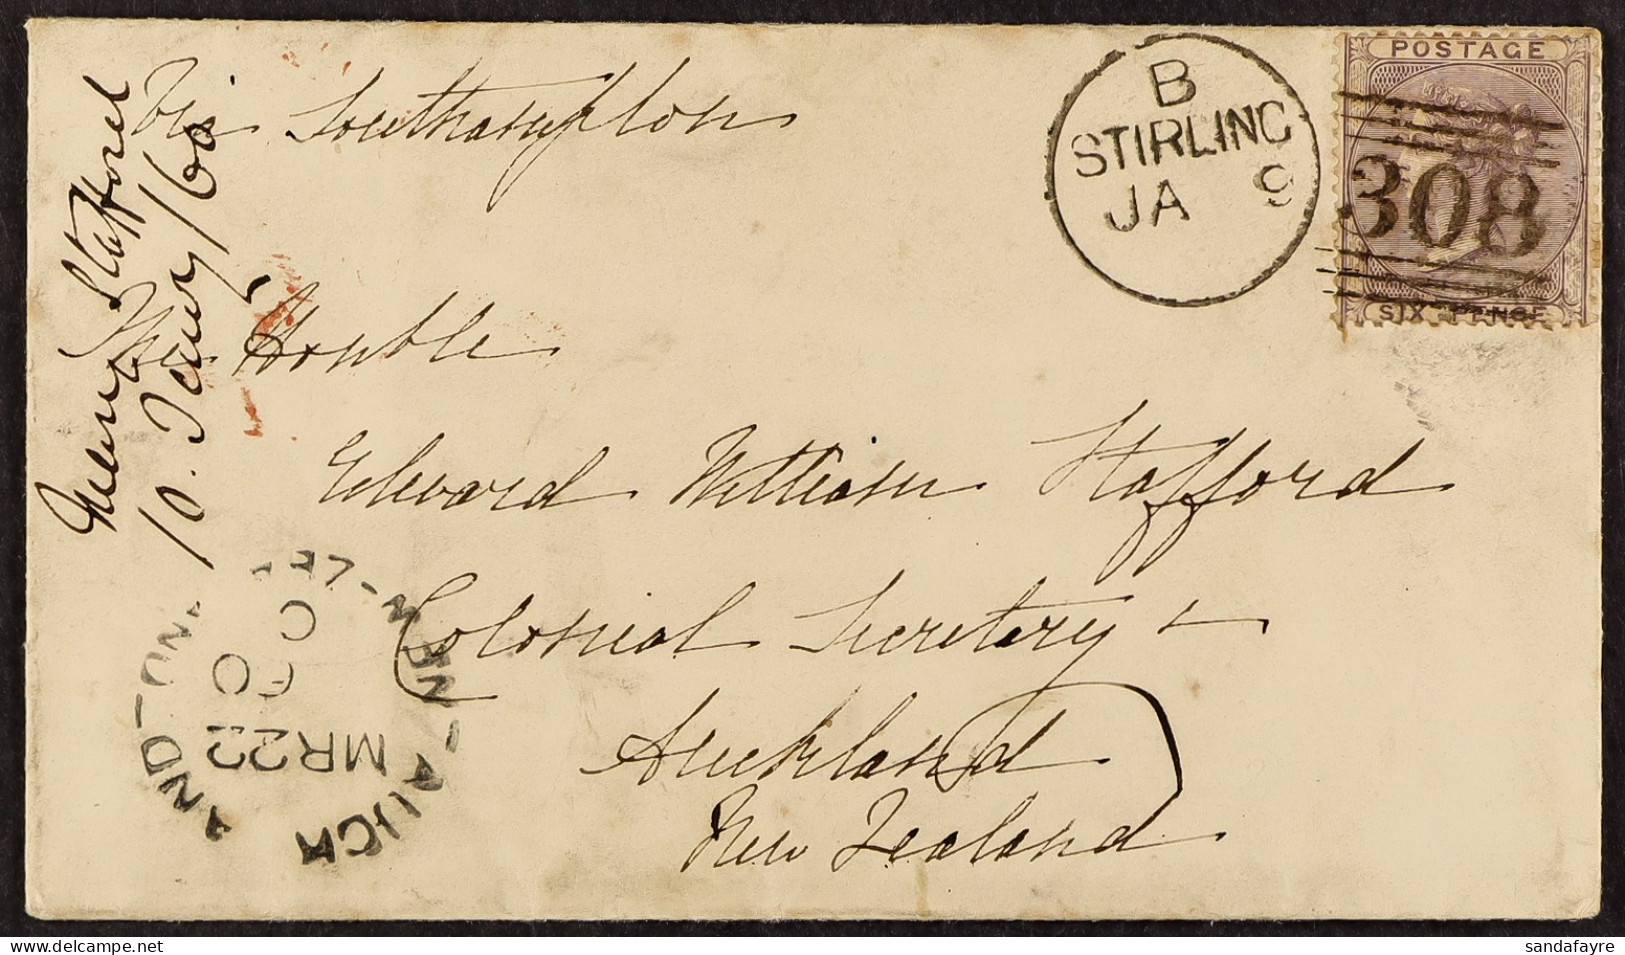 Via Southampton
Stafford
10. Jany/60
B
STIRLING
JA 9
POSTAGE
308
SIX PENCE
The Honble
Edward William Stafford
Colonial Secretary
Auckland
New Zealand
AUCKLAND - NEW-ZEALAND
C
MR 22
60
sandafayre